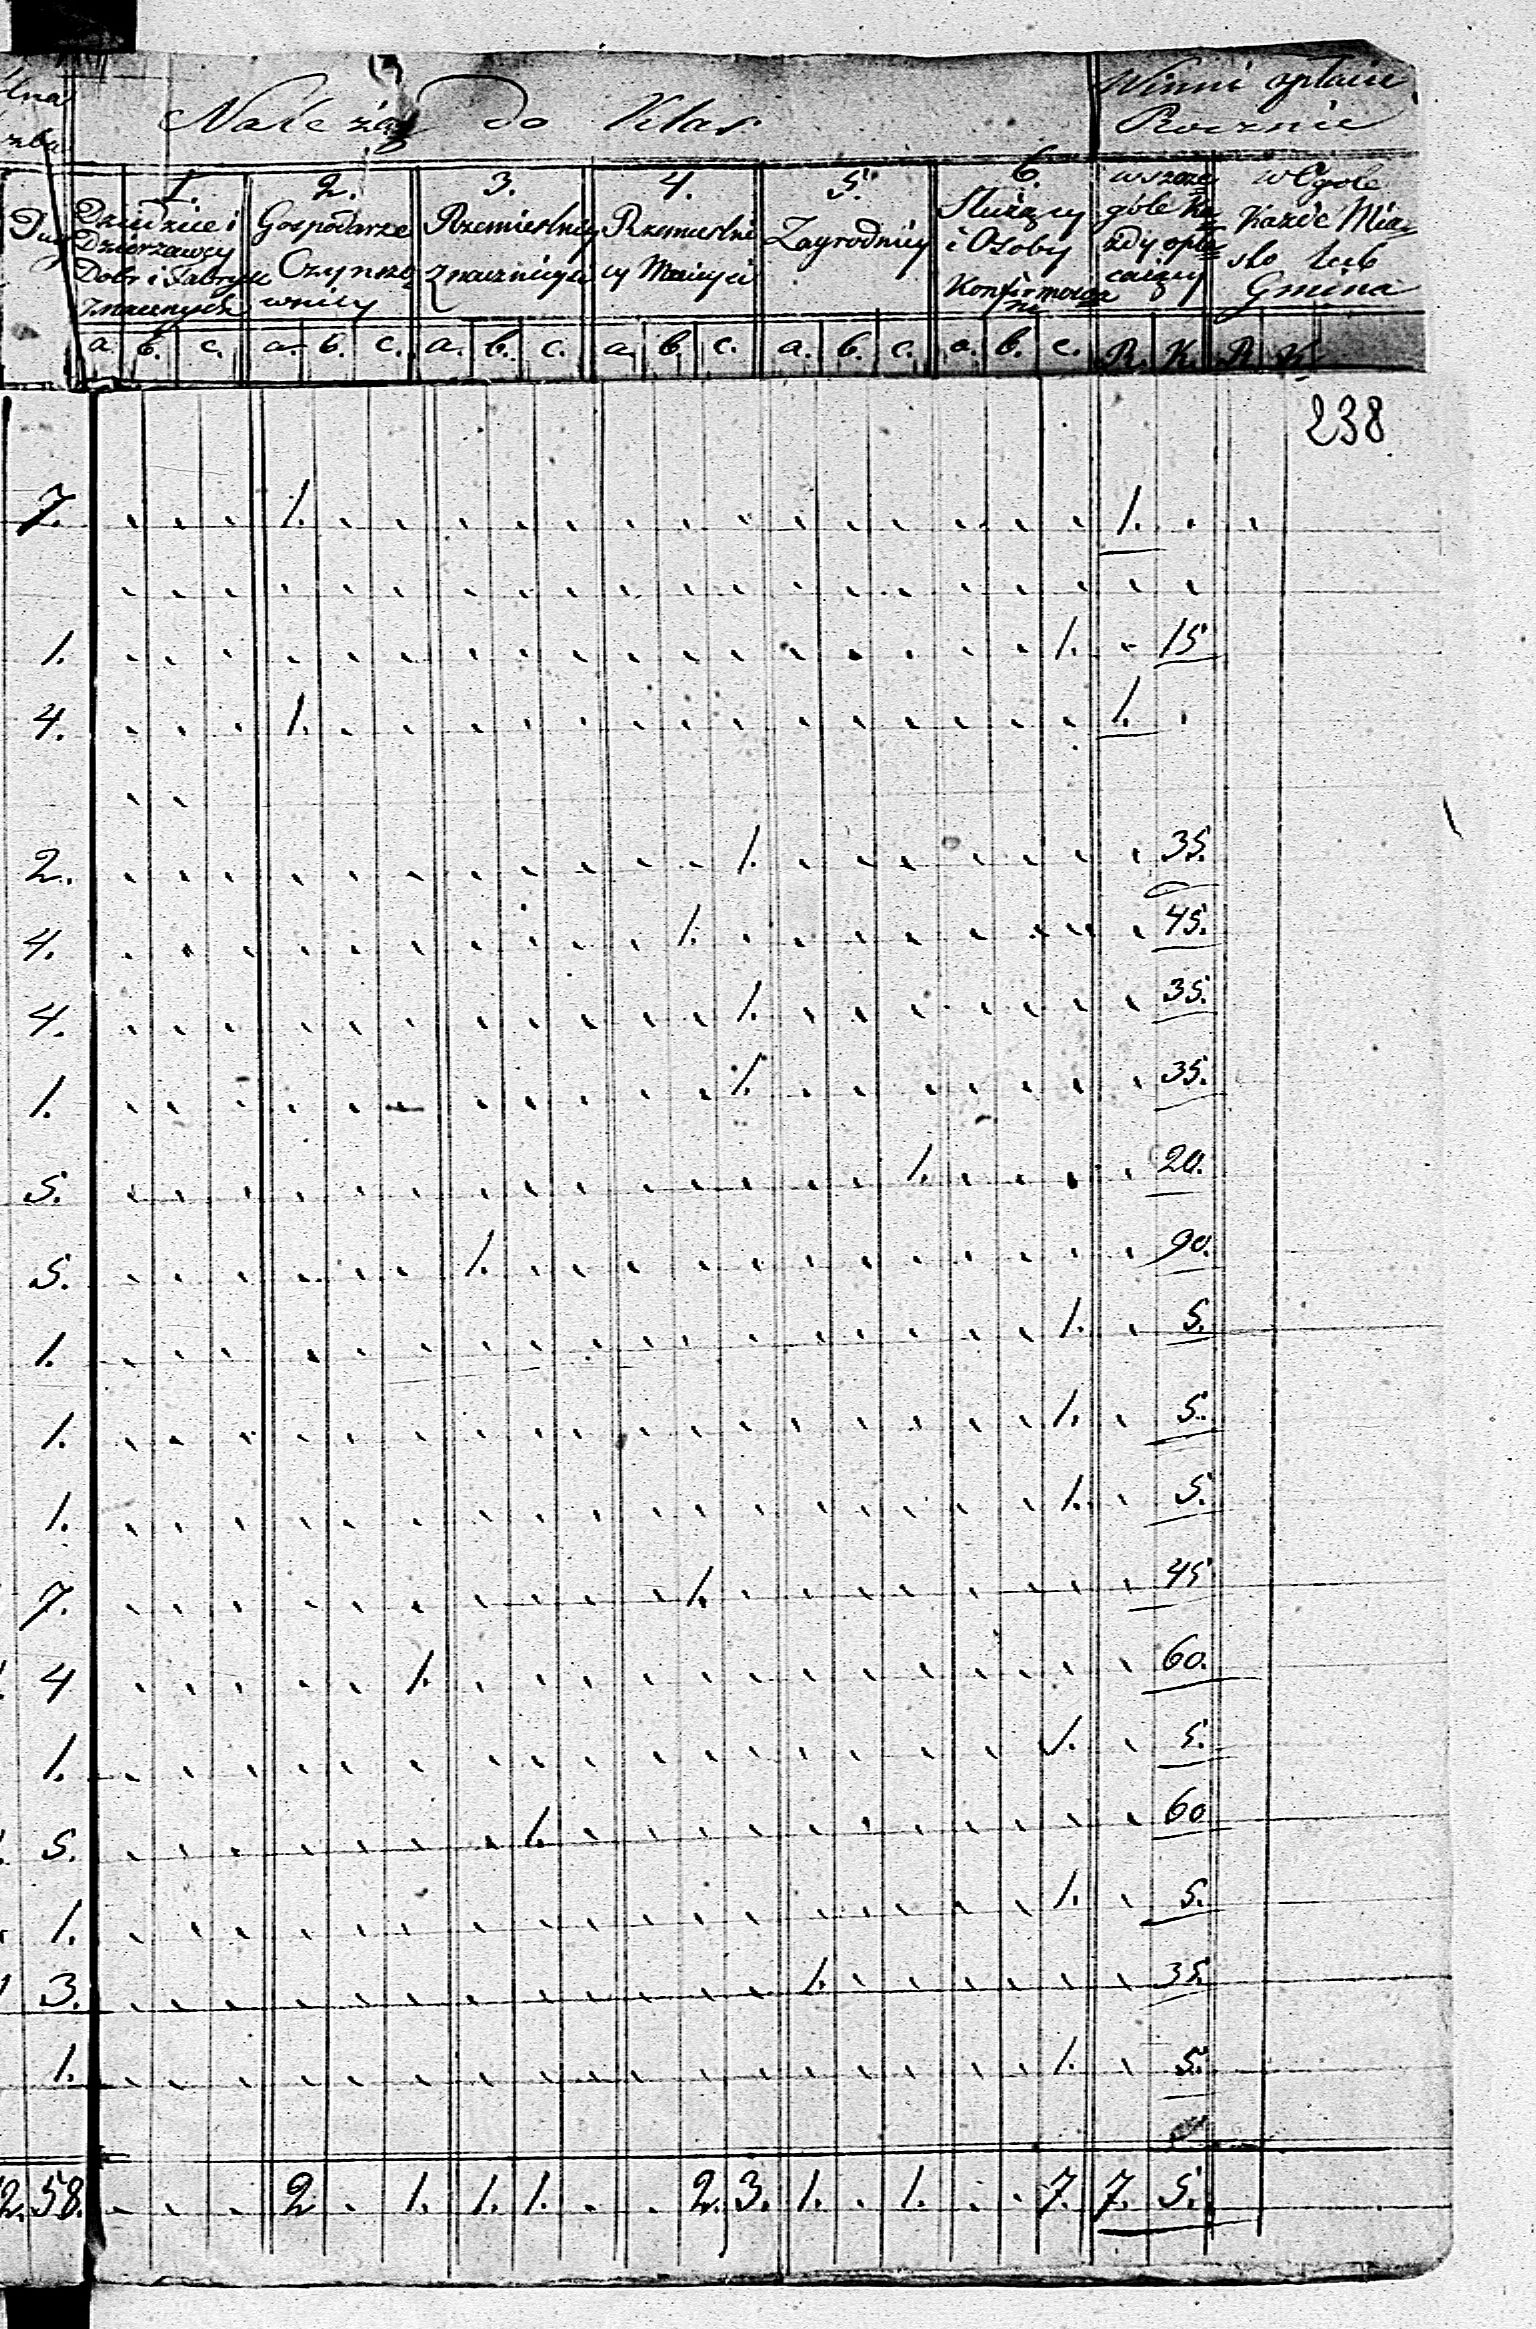 Należą do Klas
Winni opłacić
Rocznie
1. 2. 3. 4. 5. 6.
Dziedzice i
Dzierzawcy
Dobr i Fabryk
znacznych
Gospodarze
Czynszo
wnicy
Rzemieslnicy
znacznieysi
Rzemieslni
cy Mnieysi
Zagrodnicy
Służący
i Osoby
w szcze
góle Ka
żdy opła
caiący
w Ogole
Każde Mia
sto lub
Gmina
a. b. c. a. b. c. a. b. c. a. b. c. a. b. c. a. b. c. R. K. R. K.
238
7. 1. 1.
1. 1. 15
4. 1. 1.
2. 1. 35.
4. 1. 45.
4. 1. 35.
1. 1. 35.
5. 1. 20.
5. 1. 90.
1. 1. 5.
1. 1. 5.
1. 1. 5.
7. 1. 45
4 1. 60.
1. 1. 5.
5. 1. 60
1. 1. 5.
3. 1. 35.
1. 1. 5.
58. 2 1. 1. 1. 2. 3. 1. 1. 7. 7. 5.